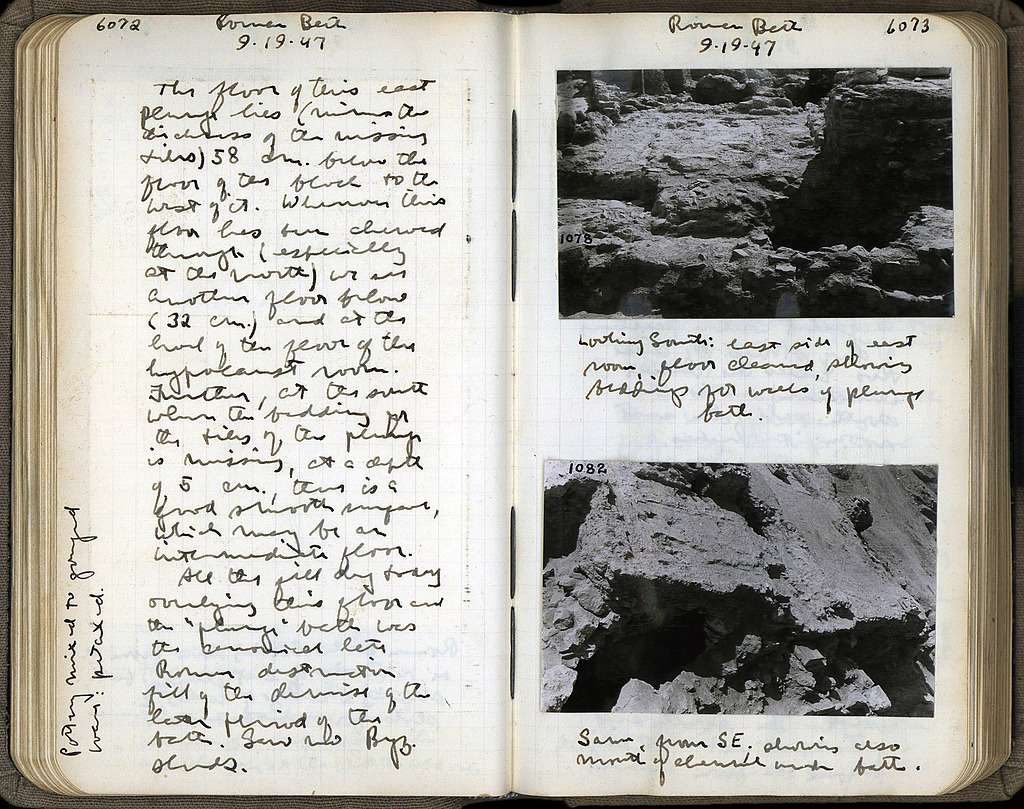 6072 Roman Bath
9-19-47
The floor of this east
plunge lies (minus the
thickness of the missing
tiles) 58 cm. below the
floor of the block to the
west of it. Wherever this
floor has been chewed
through (especially
at the north) we see
another floor below
(32 cm.) and at the
level of the floor of the
hypocaust room.
Further, at the south
where the bedding for
the tiles of the plunge
is missing, at a depth
of 5 cm., there is a
good smooth surface,
which may be an
intermediate floor.
All the fill dug today
overlying this floor and
the "plunge" bath was
the canonical late
Roman destruction
fill of the demise of the
later period of the
bath. Saw no Byz.
sherds.
Pottery mixed to gouged
wares:
Roman Bath 6073
9-19-47
1078
Looking South: east side of east
room, floor cleaned, showing
beddings for walls of plunge
bath.
1082
Same, from SE. showing also
mouth of channel under bath.